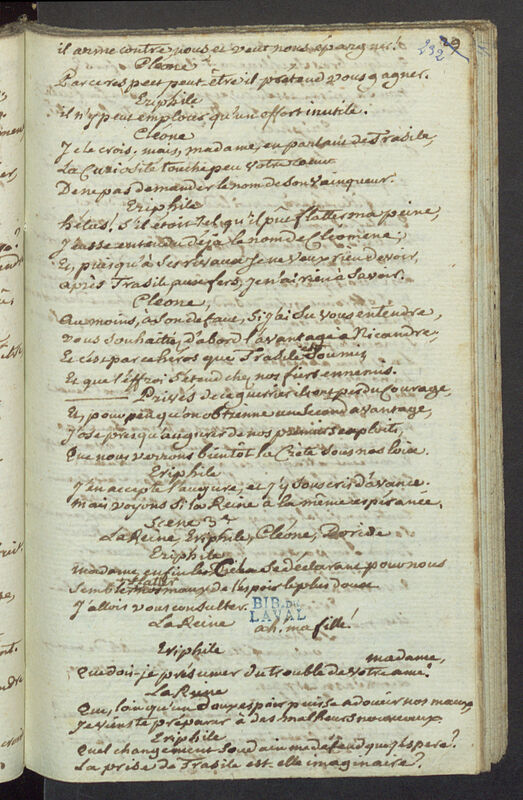 232
il arme contre nous et veut nous épargner!
Cléone
Par ce respect peut-être il prétend vous gagner.
Eriphile
il n'y peut employer qu'un effort inutile.
Cléone
Je le crois, mais, madame, en parlant de Trasile,
La Curiosité touche peu votre coeur
De ne pas demander le nom de son vainqueur.
Eriphile
hélas! s'il étoit tel qu'il pût flatter ma peine,
J'eusse entendu déja le nom de Cleomene;
Et, puisqu'à ses rivaux je ne veux rien devoir,
après Trasile aux fers, Je n'ai rien à savoir.
Cléone,
au moins, à son défaut, si j'ai su vous entendre,
vous souhaitiés d'abord l'avantage à Nicandre;
Et c'est par ce heros que Trasile est soumis
Et que l'effroi s'étend chez nos fiers ennemis.
Privés de ce guerrier ils ont perdu courage
Et, pour peu qu'on obtienne un second avantage,
J'ose presqu'augurer de nos premiers exploits,
Que nous verrons bientôt la Crète sous nos loix.
Eriphile
J'en accepte l'augure, et j'y souscris d'avance.
mais voyons si la Reine a la même espérance.
Scene 3e
La Reine, Eriphile, Cléone, Doride
Eriphile
madame, enfin le Ciel se déclarant pour nous
Semble flatter nos maux de l'espoir le plus doux
J'allois vous consulter.
BIB. DE
LAVAL
La Reine
ah, ma fille!
Eriphile
madame,
Que dois-je présumer du trouble de votre ame?
La Reine
Que, loin qu'un doux espoir puisse adoucir nos maux,
Je viens te préparer à des malheurs nouveaux.
Eriphile
Quel changement soudain me défend que j'espere?
La prise de Trasile est-elle imaginaire?